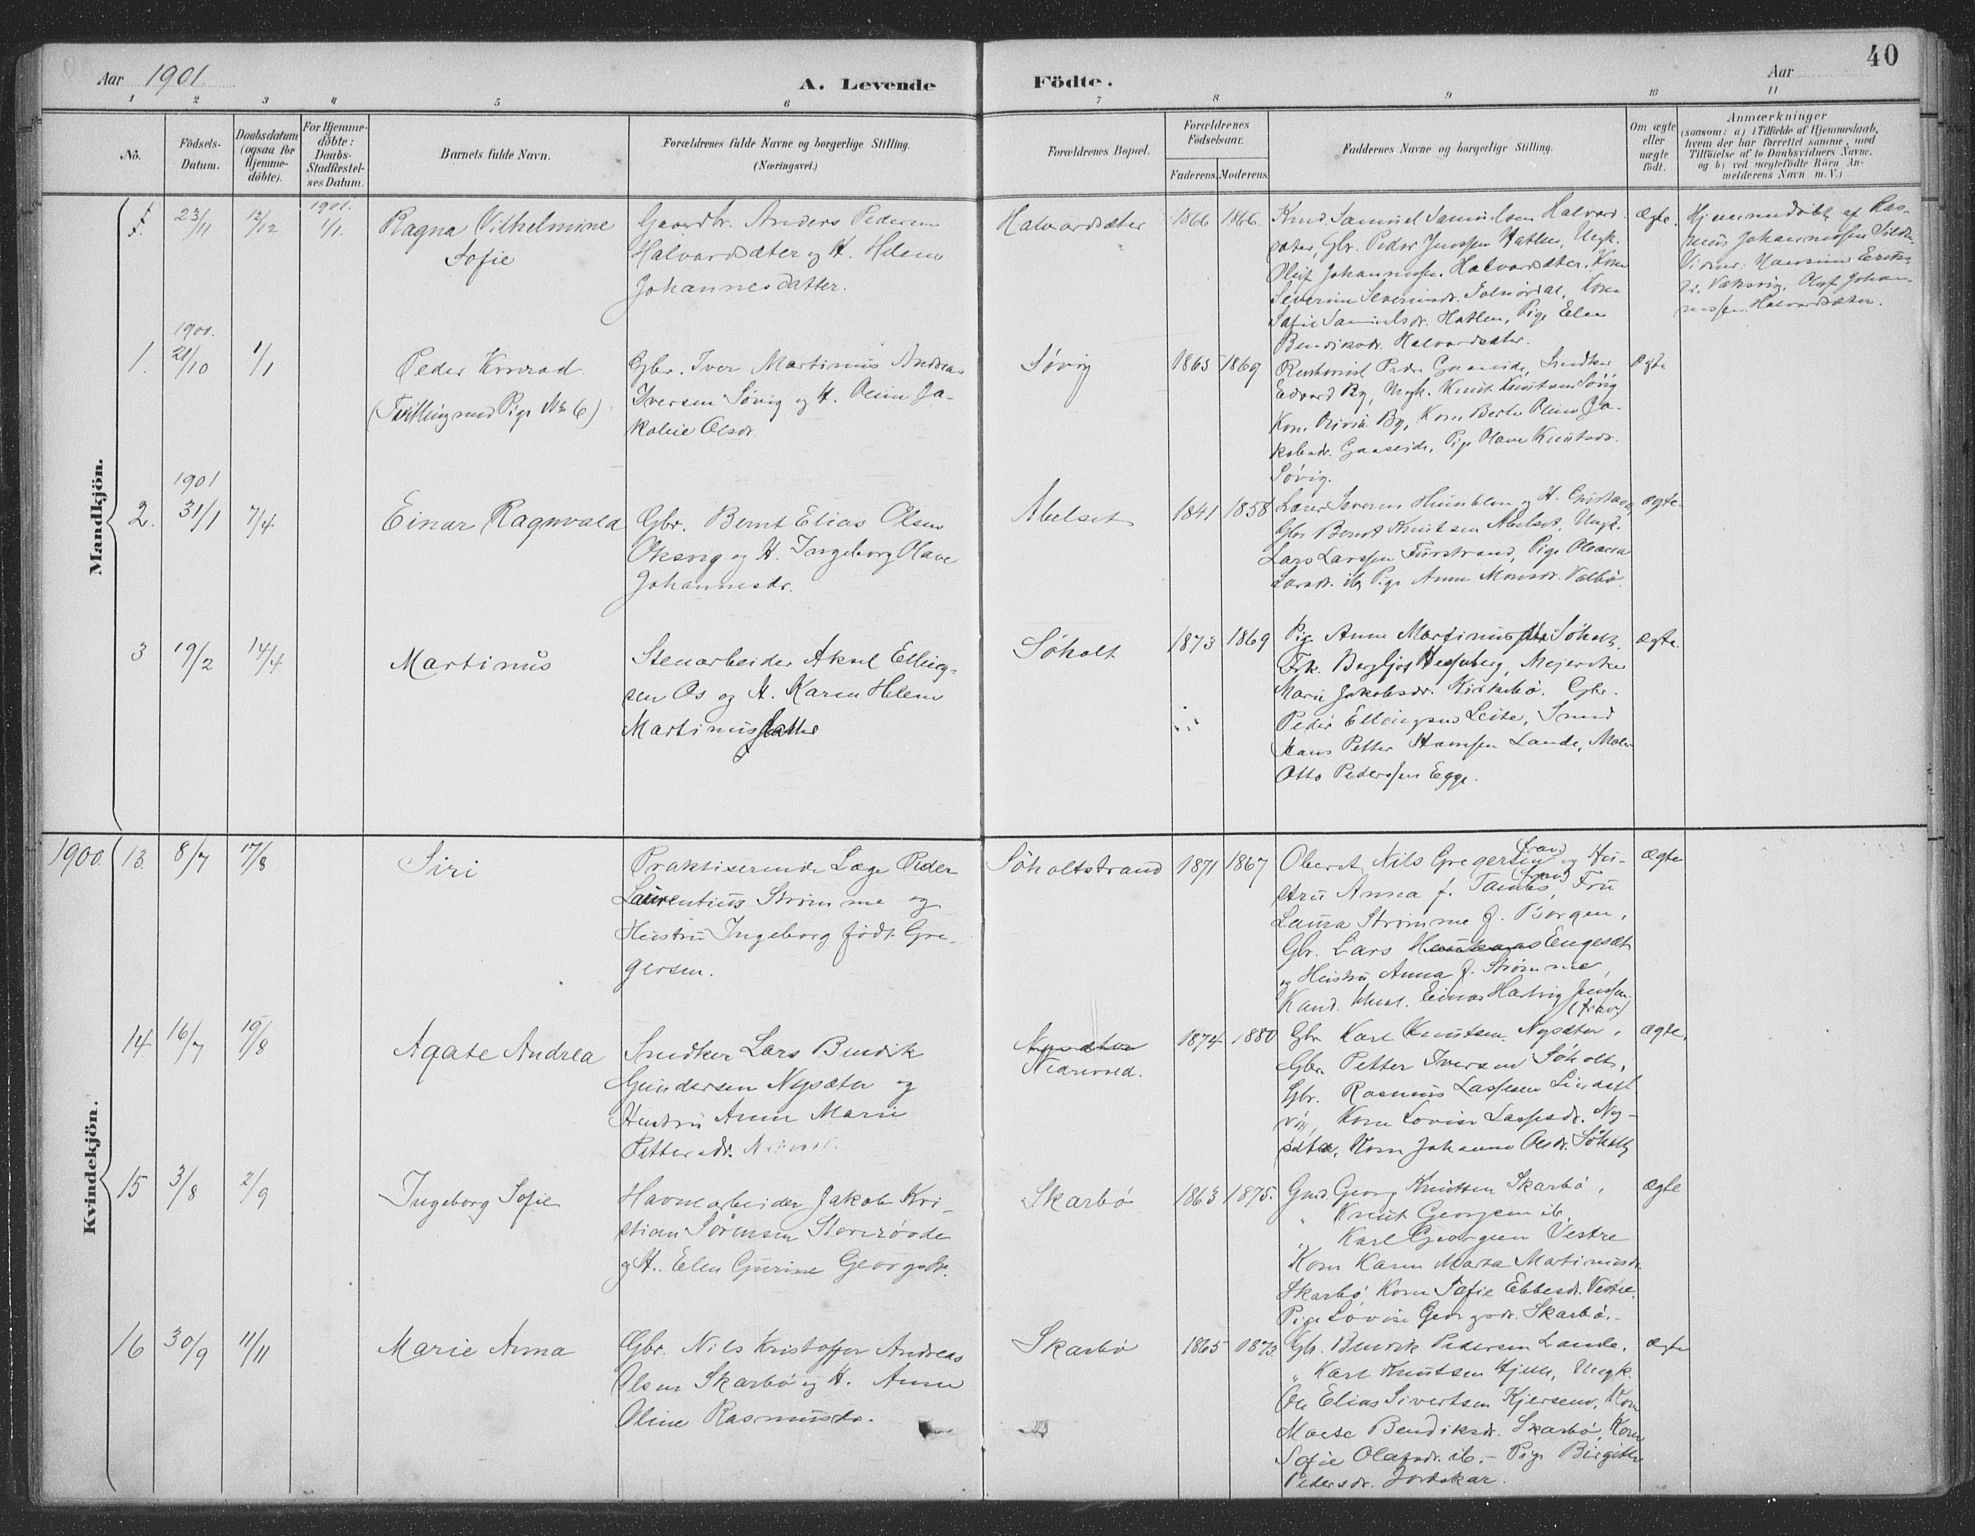 40
Aar 1901.
A. Levende Födte.
Aar
1 2 3 4 5 6 7 8 9 10 11
No.
Födsels-
Datum.
Daabsdatum
(ogsaa for
Hjemme-
döbte).
For Hjemme-
döbte:
Daabs-
Stadfæstel-
ses Datum.
Barnets fulde Navn.
Forældrenes fulde Navne og borgerlige Stilling.
(Næringsvei.)
Forældrenes Bopæl.
Forældrenes
Födselsaar.
Faderens. Moderens.
Faddernes Navne og borgerlige Stilling.
Om ægte
eller
uægte
födt.
Anmærkninger
(saasom: a) i Tilfælde af Hjemmedaab,
hvem der har forrettet samme, med
Tilföielse af to Daabsvidners Navne.
og b) ved uægtefödte Börn An-
melderens Navn m. V.)
Mandkjön.
23/11 12/12 1901. 1/1.
Ragna Vilhelmine
Sofie
Gaardbr. Anders Pedersen
Halvardsæter og H. Helene
Johannesdatter.
Halvardsæter
1866 1866
Knud Samuel Samuelsen Halvard
sæter, Gbr. Peder Jenssen Hatlen, Ungk.
Oluf Johannessen Halvardsæter. Kone
Severine Severinsdr. Solnördal, Kone
Sofie Samuelsdr. Hatlen, Pige Elen
Bendiksdr. Halvardsæter.
ægte.
Hjemmedöbt af Ras-
mus Johannessen
Vidner: Hansine Eriks
dr. Vaksvig, Oluf Johan-
nessen Halvardsæter.
1900.
1. 21/10 1/1
Peder Konrad
(Tvilling med Pige No 6)
Gbr. Iver Martinus Andreas
Iversen Søvig og H. Oline Ja-
kobie Olsdr.
Søvig
1865 1869
Peder Gaaseide, Snedker
Edvard By, Ungk. Knut Knutsen Søvig
Kone By, Kone Berte Oline Ja-
kobsdr. Gaaseide, Pige Olave Knutsdr.
Søvig.
Ægte
1901
2. 31/1 7/4
Einar Ragnvald
Gbr. Bernt Elias Olsen
Oksvig og H. Ingeborg Olave
Johannesdr.
Abelset
1841 1858
Lærer Severin Humblen og H. Gustava,
Gbr Bernt Knutsen Abelset, Ungk.
Lars Larssen Furstrand, Pige Oleana
Larsdr. ib, Pige Anne Monsdr. Valbö.
ægte.
3 19/2 14/4
Martinus
Stenarbeider Aksel Elling-
sen Os og H. Karen Helene
Martinusdatter
Søholt
1873 1869
Pige Anne Martinusdtr. Søholt,
Frk. Bergljot Hessenberg, Meierske
Marie Jakobsdr. Kirkebö. Gbr.
Peder Ellingsen Leite, Smed
Hans Petter Hansen Lande, Maler
Otto Pederssen Egge.
ægte.
Kvindekjön.
1900. 13. 8/7 17/8
Siri
Praktiserende Læge Peder
Laurentius Strømme og
Hustru Ingeborg født Gre-
gersen.
Søholtstrand
1871 1867
Oberst Nils Gregersen (frav) og Hu-
stru Anna f. Tambs (frav), Fru
Laura Strømme f. Borgen,
Gbr. Lars Engesæt
og Hustru Anna f. Strømme,
Kand. theol. Einar Hartvig Jenssen
(frav)
ægte
14 16/7 19/8
Agate Andrea
Snedker Lars Bendik
Gundersen Nysæter og
Hustru Anne Marie
Pettersdr.
Nysæter
Nedreved.
1874 1880
Gbr Karl Knutsen Nysæter,
Gbr. Petter Iversen Søholt,
Gbr. Rasmus Lassesen
Kone Lovise Lassesdr. Ny-
sæter, Kone Johanne Olsdr. Søholt
ægte.
15 3/8 2/9
Ingeborg Sofie
Havnearbeider Jakob Kri-
stian Sørensen
og H. Elen Gurine Georgsdr.
Skarbø
1863 1875.
Gmd. Georg Knutsen Skarbø,
" Knut Georgsen ib.
" Karl Georgsen Vestre
Kone Karen Marta Martinusdr.
Skarbø Kone Sofie Ebbesdr. Vestre.
Pige Lovise Georgsdr. Skarbø.
ægte
16 30/9 11/11
Marie Anna
Gbr. Nils Kristoffer Andreas
Olsen Skarbø og H. Anne
Oline Rasmusdr.
Skarbø
1865 1873.
Gbr. Bendik Pedersen Lande,
" Karl Knutsen Hjelle, Ungk.
Ole Elias Sivertsen Kjersem, Kone
Marte Bendiksdr. Skarbø, Kone
Sofie Olafsdr. ib. - Pige Birgitte
Pedersdr. Jordskar.
ægte